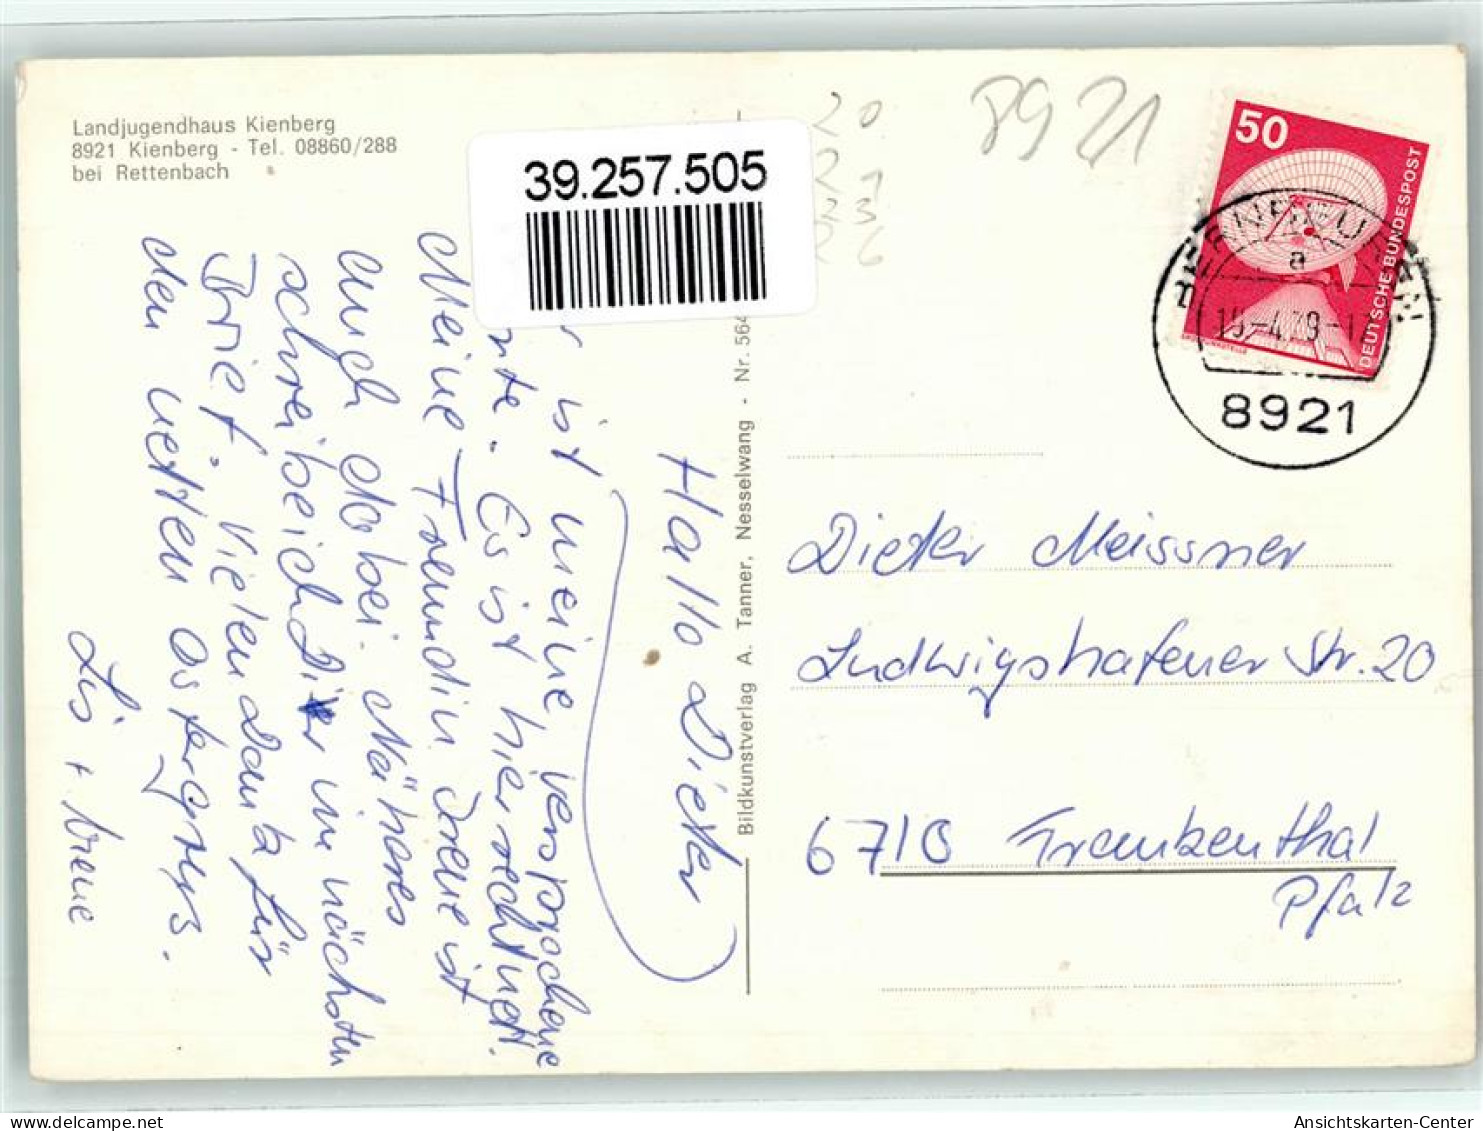 Landjugendhaus Kienberg
8921 Kienberg - Tel. 08860/288
bei Rettenbach
39.257.505
20
8921
50
DEUTSCHE BUNDESPOST
a
8921
Bildkunstverlag A. Tanner, Nesselwang - Nr. 564
Hallo Dieter
ist meine versprochene
Es ist hier recht nett.
Meine Freundin Irene ist
auch dabei. Näheres
schreibe ich Dir im nächsten
Brief. Vielen Dank für
den netten Ostergruss.
Lis + Irene
Dieter Meissner
Ludwigshafener Str. 20
6710 Frankenthal
Pfalz
Ansichtskarten-Center